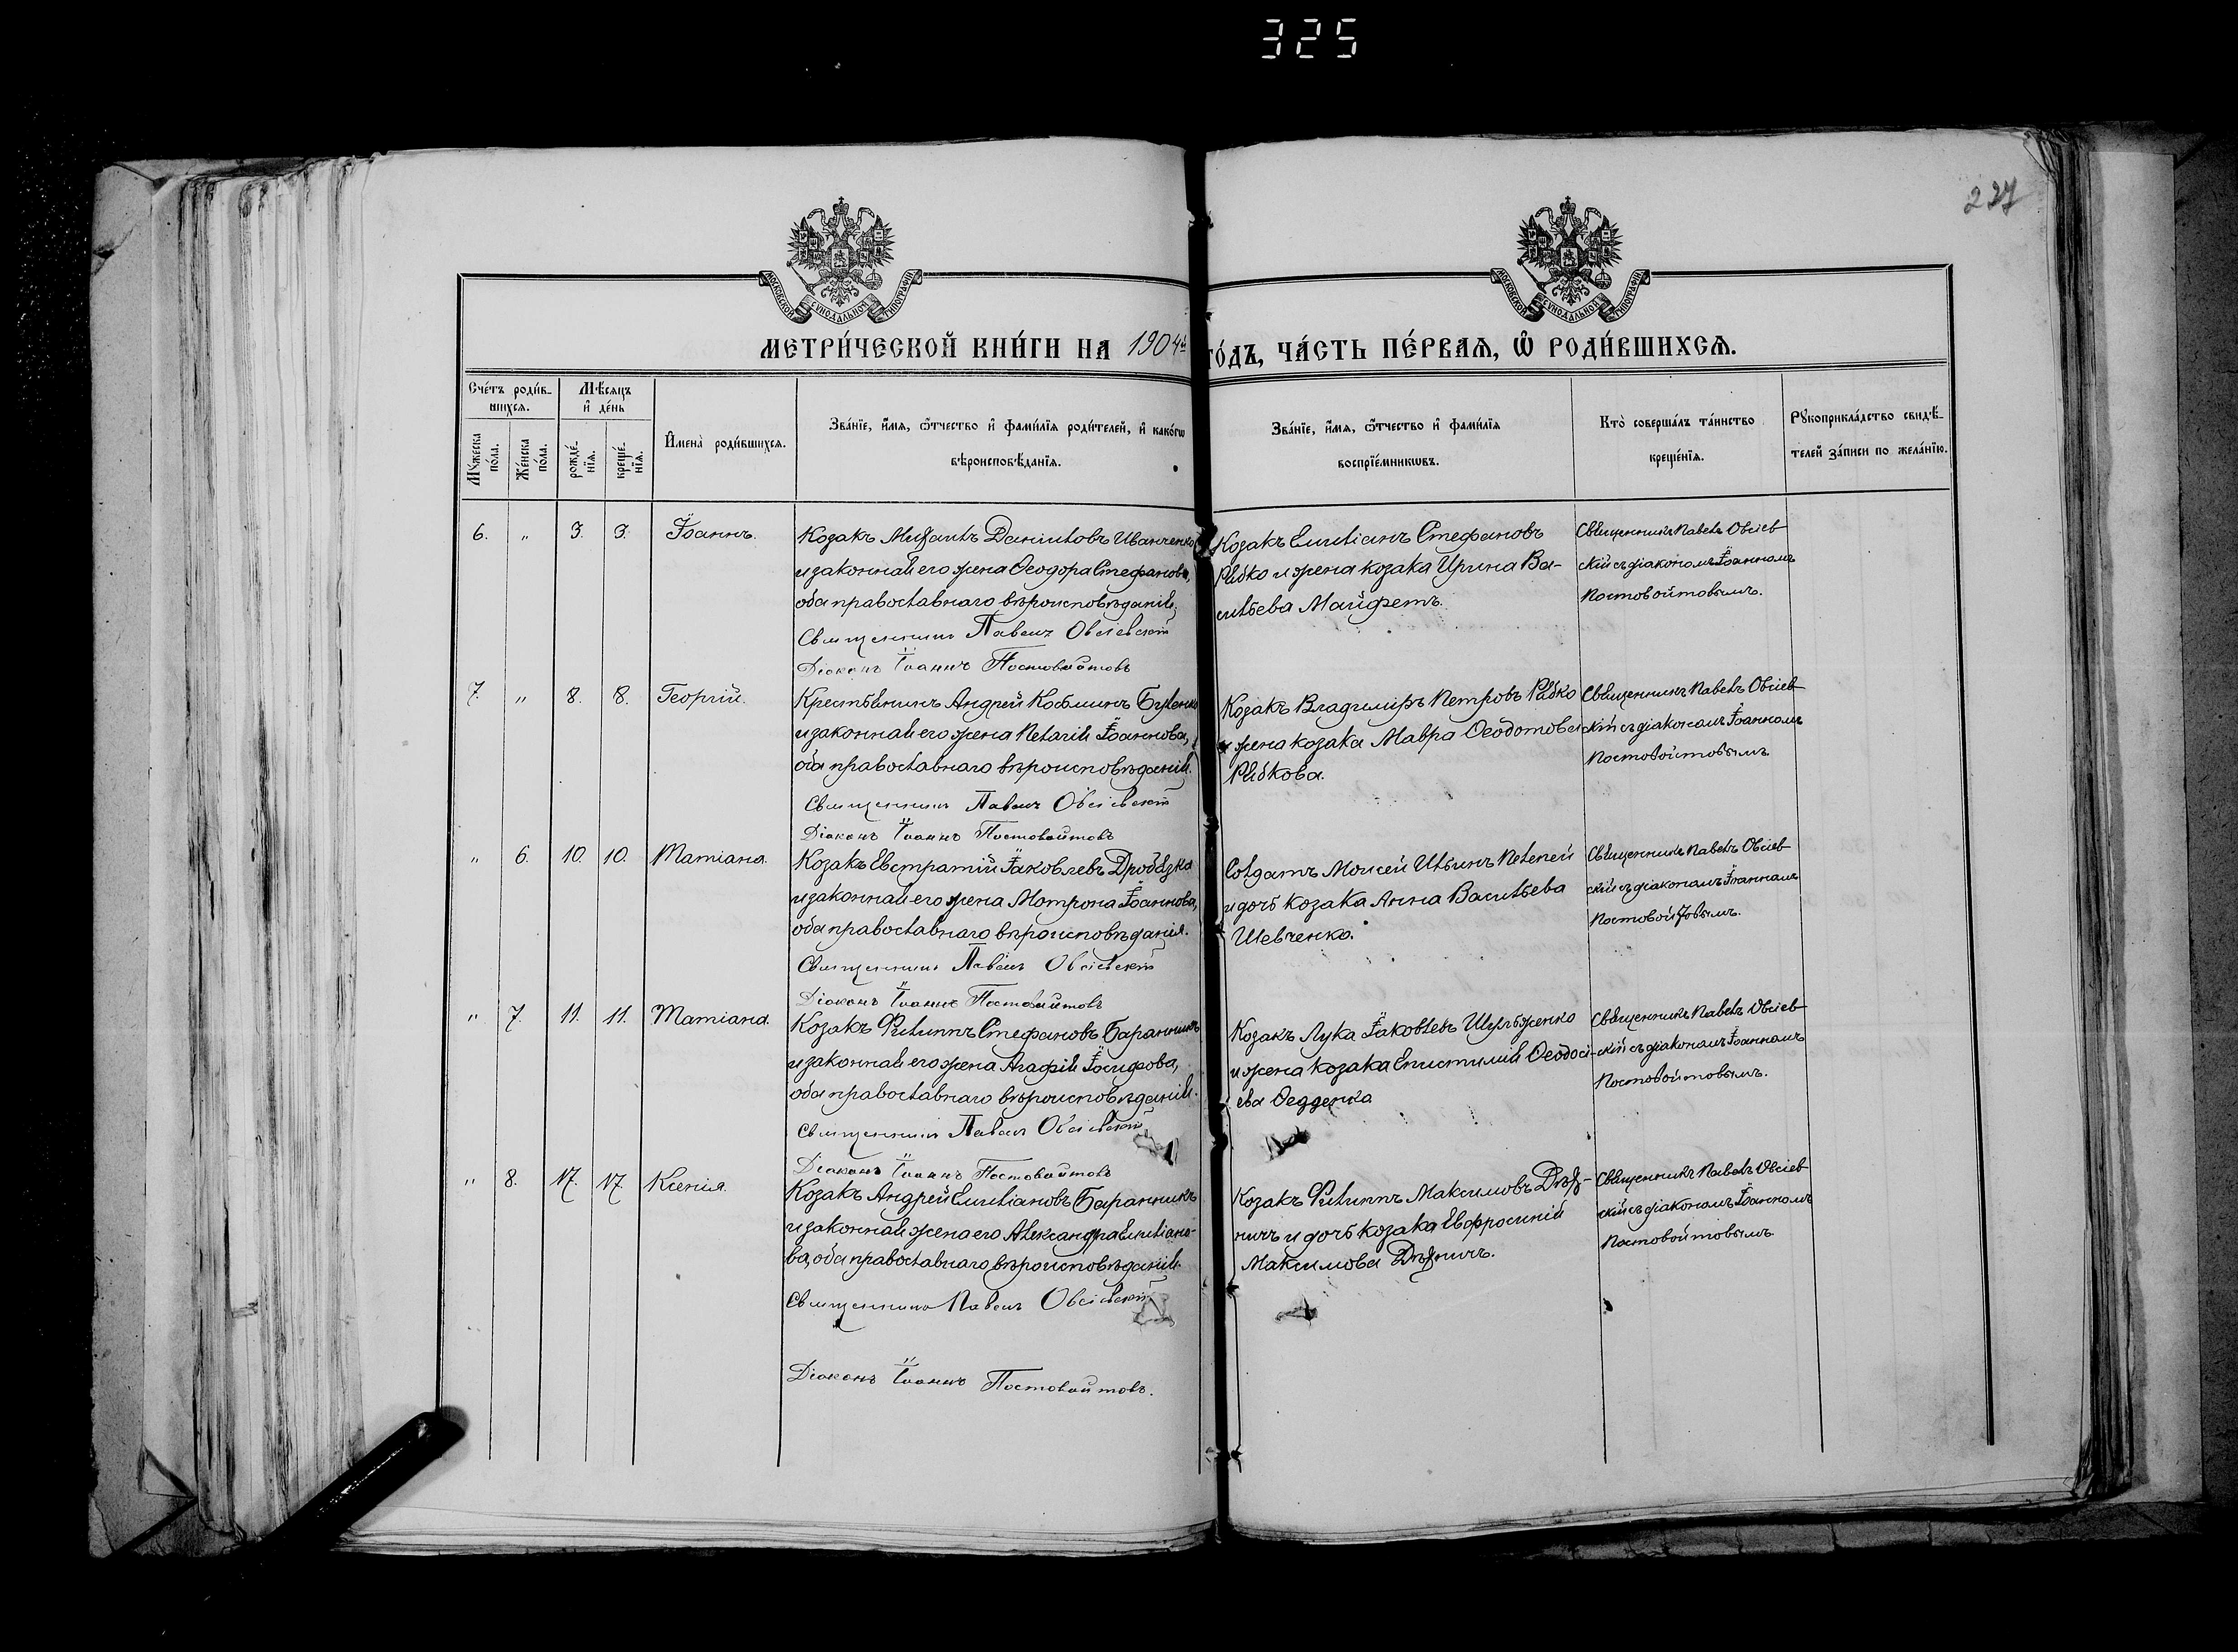 325
227
МОСКОВСКОЙ СѴНОДАЛЬНОЙ ТИПОГРАФІИ
МОСКОВСКОЙ СѴНОДАЛЬНОЙ ТИПОГРАФІИ
МЕТРИ́ЧЕСКОЙ КНИ́ГИ НА 1904й ГО́ДЪ, ЧА́СТЬ ПЕ́РВАѦ, Ѡ҆ РОДИ́ВШИХСѦ.
Сче́тъ роди́в-
шихсѧ.
Мꙋ́жеска по́ла.
Же́нска по́ла.
Мѣ́сѧцъ
и҆ де́нь
рожде́-
нїѧ.
креще́-
нїѧ.
И҆мена̀ роди́вшихсѧ.
Зва́нїе, и҆́мѧ, ѻ҆́тчество и҆ фами́лїѧ роди́телей, и҆ како́гѡ
вѣроисповѣ́данїѧ.
Зва́нїе, и҆́мѧ, ѻ҆́тчество и҆ фами́лїѧ
воспрїе́мникѡвъ.
Кто̀ соверша́лъ та́инство
креще́нїѧ.
Рꙋкоприкла́дство свидѣ́-
телей за́писи по жела́нїю.
6. " 3. 3. Іоаннъ.
Козакъ Михаилъ Даніиловъ Иванченко
и законная его жена Ѳеодора Стефанова,
оба православнаго вѣроисповѣданія.
Священникъ Павелъ Овсіевскій
Діаконъ Іоаннъ Постовойтовъ
Козакъ Емиліанъ Стефановъ
Рябко и жена козака Ирина Ва-
сильева Майфетъ.
Священникъ Павелъ Овсіев-
скій съ діакономъ Іоанномъ
Постовойтовымъ.
7. " 8. 8. Георгій.
Крестьянинъ Андрей Косьминъ Бутенко
и законная его жена Пелагія Іоаннова,
оба православнаго вѣроисповѣданія.
Священникъ Павелъ Овсіевскій
Діаконъ Іоаннъ Постовойтовъ
Козакъ Владиміръ Петровъ Рябко
и жена козака Мавра Ѳеодотова
Рябкова.
Священникъ Павелъ Овсіев-
скій съ діакономъ Іоанномъ
Постовойтовымъ
" 6. 10. 10. Татіана.
Козакъ Евстратій Іаковлевъ Дробязка
и законная его жена Мотрона Іоаннова,
оба православнаго вѣроисповѣданія.
Священникъ Павелъ Овсіевскій
Діаконъ Іоаннъ Постовойтовъ
Солдатъ Моисей Ильинъ Пелепей
и дочь козака Анна Васильева
Шевченко.
Священникъ Павелъ Овсіев-
скій съ діакономъ Іоанномъ
Постовойтовымъ.
" 7. 11. 11. Татіана.
Козакъ Филиппъ Стефановъ Баранникъ
и законная его жена Агафія Іосифова,
оба православнаго вѣроисповѣданія.
Священникъ Павелъ Овсіевскій
Діаконъ Іоаннъ Постовойтовъ
Козакъ Лука Іаковлевъ Шульженко
и жена козака Епистимія Ѳеодосі-
ева Ѳедденка
Священникъ Павелъ Овсіев-
скій съ діакономъ Іоанномъ
Постовойтовымъ.
" 8. 17. 17. Ксенія.
Козакъ Андрей Емиліановъ Баранникъ
и законная жена его Александра Емиліано-
ва, оба православнаго вѣроисповѣданія.
Священникъ Павелъ Овсіевскій
Діаконъ Іоаннъ Постовойтовъ.
Козакъ Филиппъ Максимовъ
и дочь козака Евфросинія
Максимова
Священникъ Павелъ Овсіев-
скій съ діакономъ Іоанномъ
Постовойтовымъ